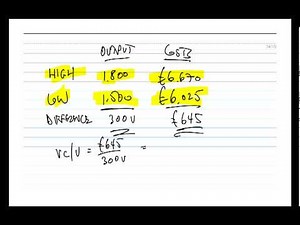 OUTPUT COST
HIGH 1,800 £6,670
LOW 1,500 £6,025
DIFFERENCE 300U £645
VC/U = £645 =
300U